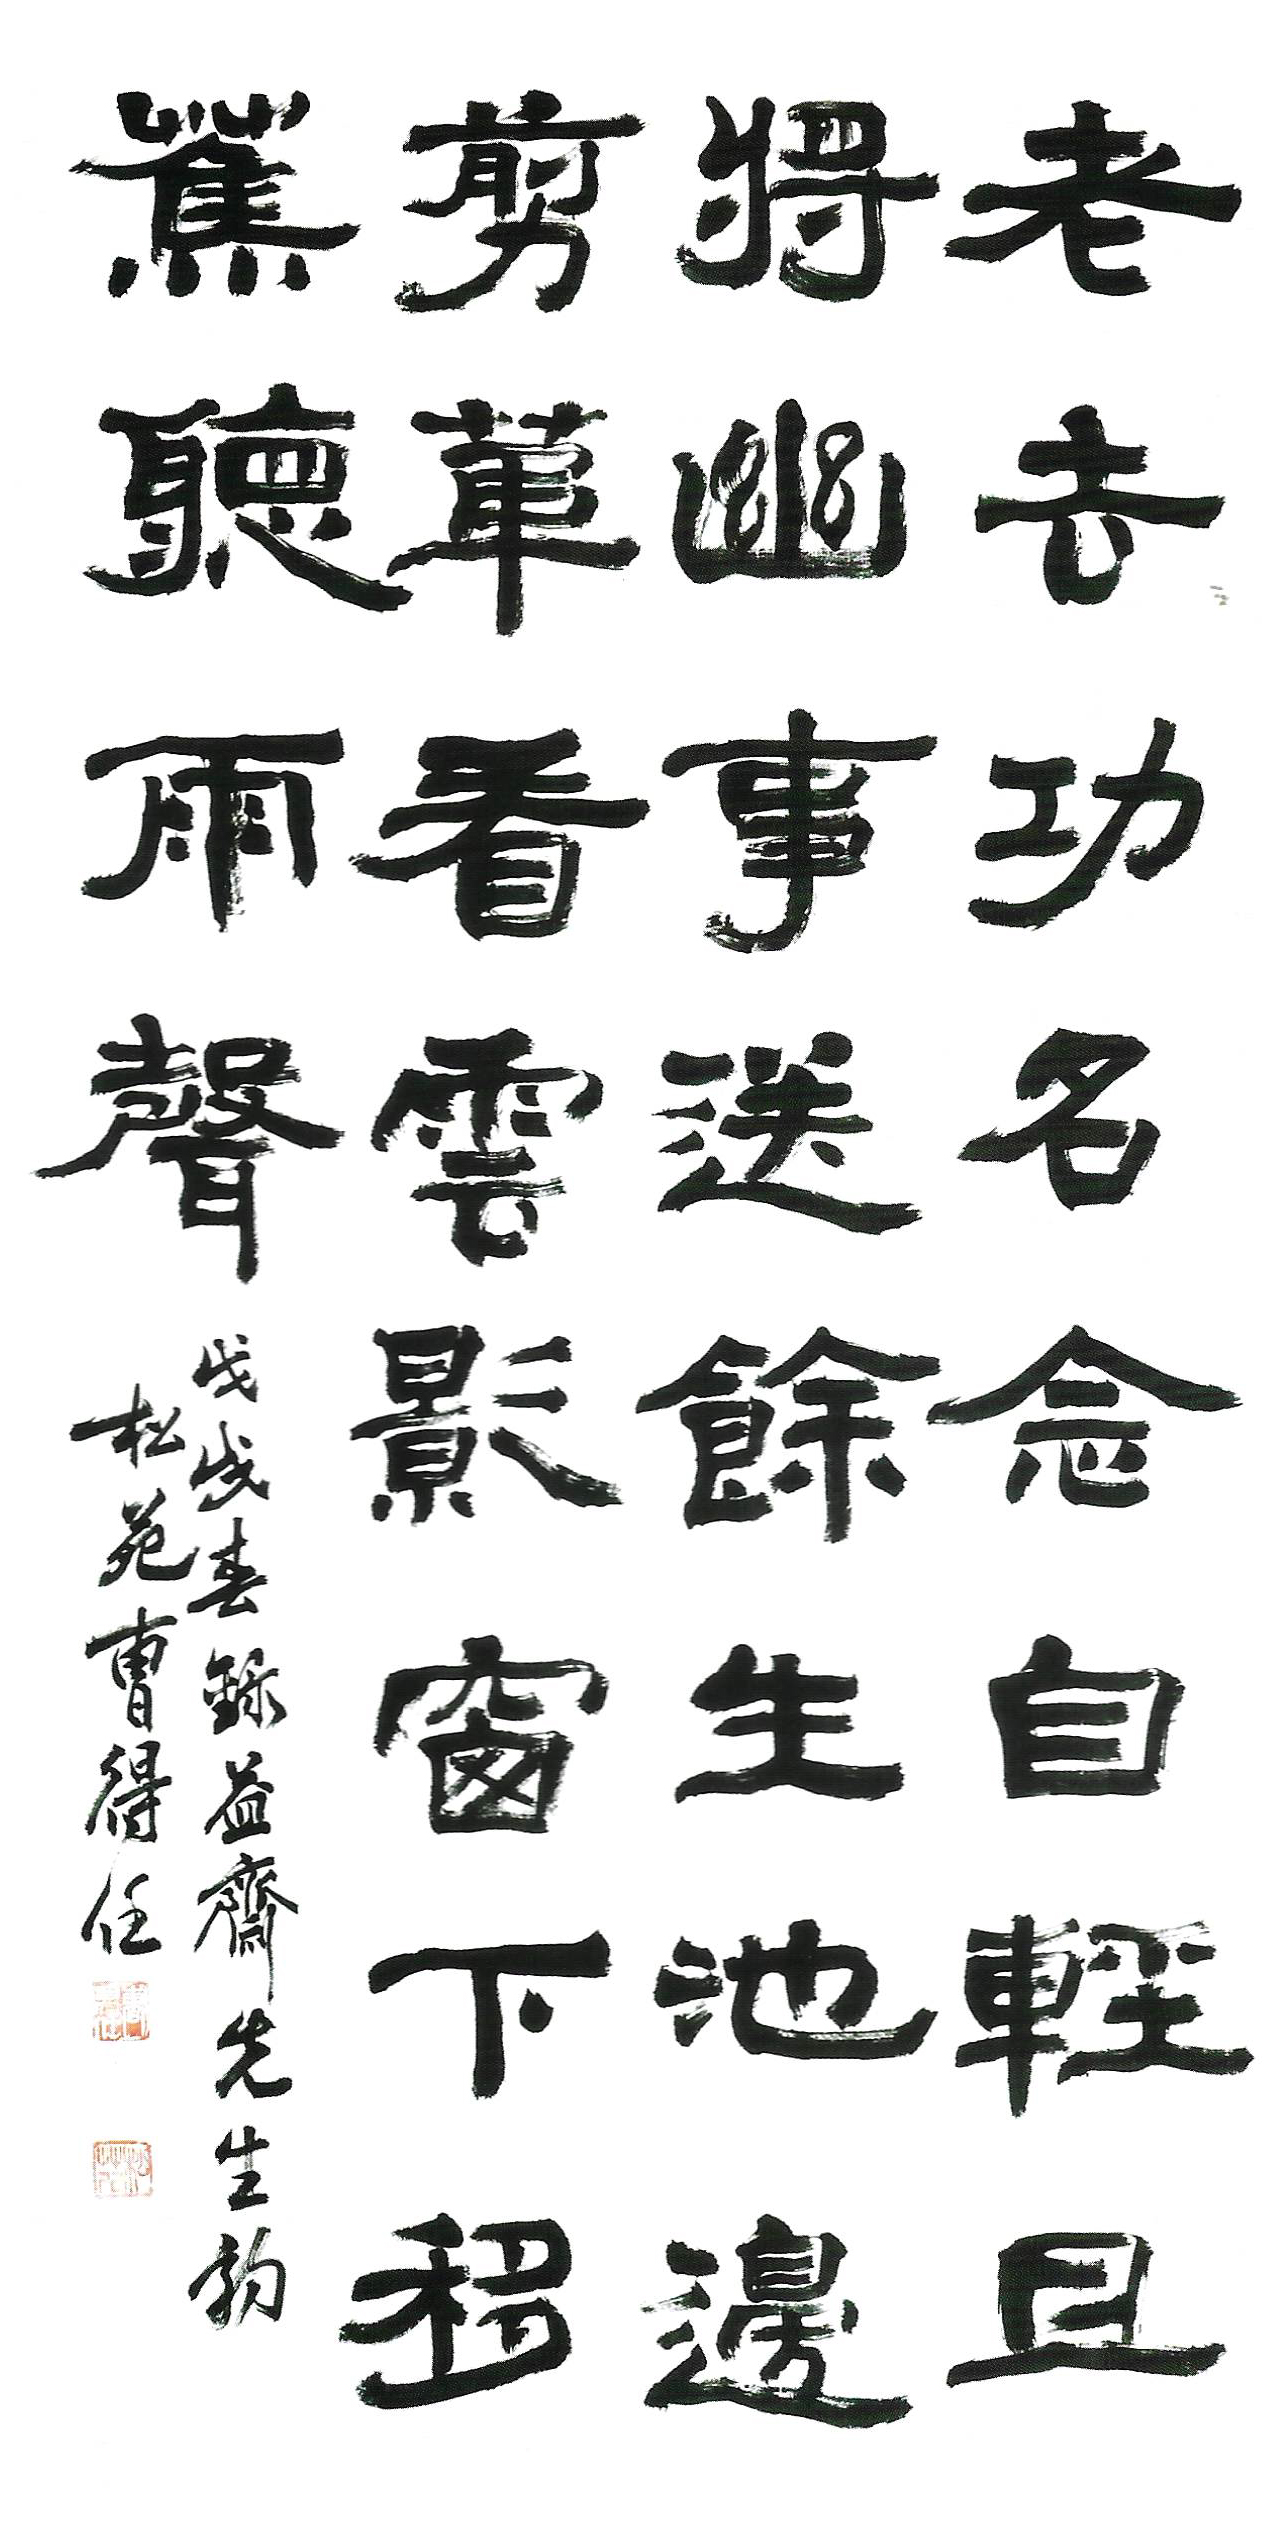 老去功名念自輕且
將幽事送餘生池邊
剪葦看雲影窗下移
蕉聽雨聲
戊戌春錄益齋先生韵
松苑曹得任